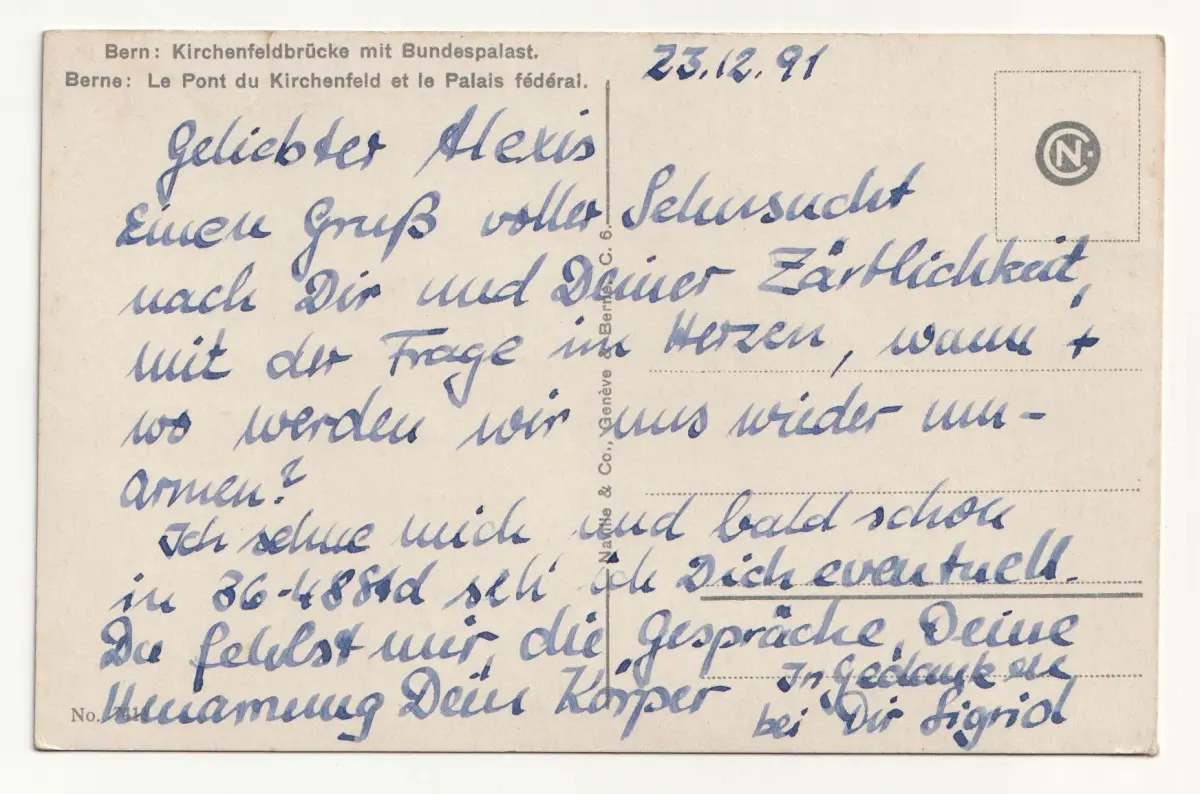 Bern: Kirchenfeldbrücke mit Bundespalast.
Berne: Le Pont du Kirchenfeld et le Palais fédéral.
23.12.91
CN
Geliebter Alexis
Einen Gruß voller Sehnsucht
nach Dir und Deiner Zärtlichkeit,
mit der Frage im Herzen, wann +
wo werden wir uns wieder um-
armen?
Ich sehne mich und bald schon
in 36-48Std seh' ich Dich eventuell.
Du fehlst mir, die Gespräche, Deine
Umarmung Dein Körper
In Gedanken
bei Dir Sigrid
Naville & Co., Genève & Berne. C. 6.
No.